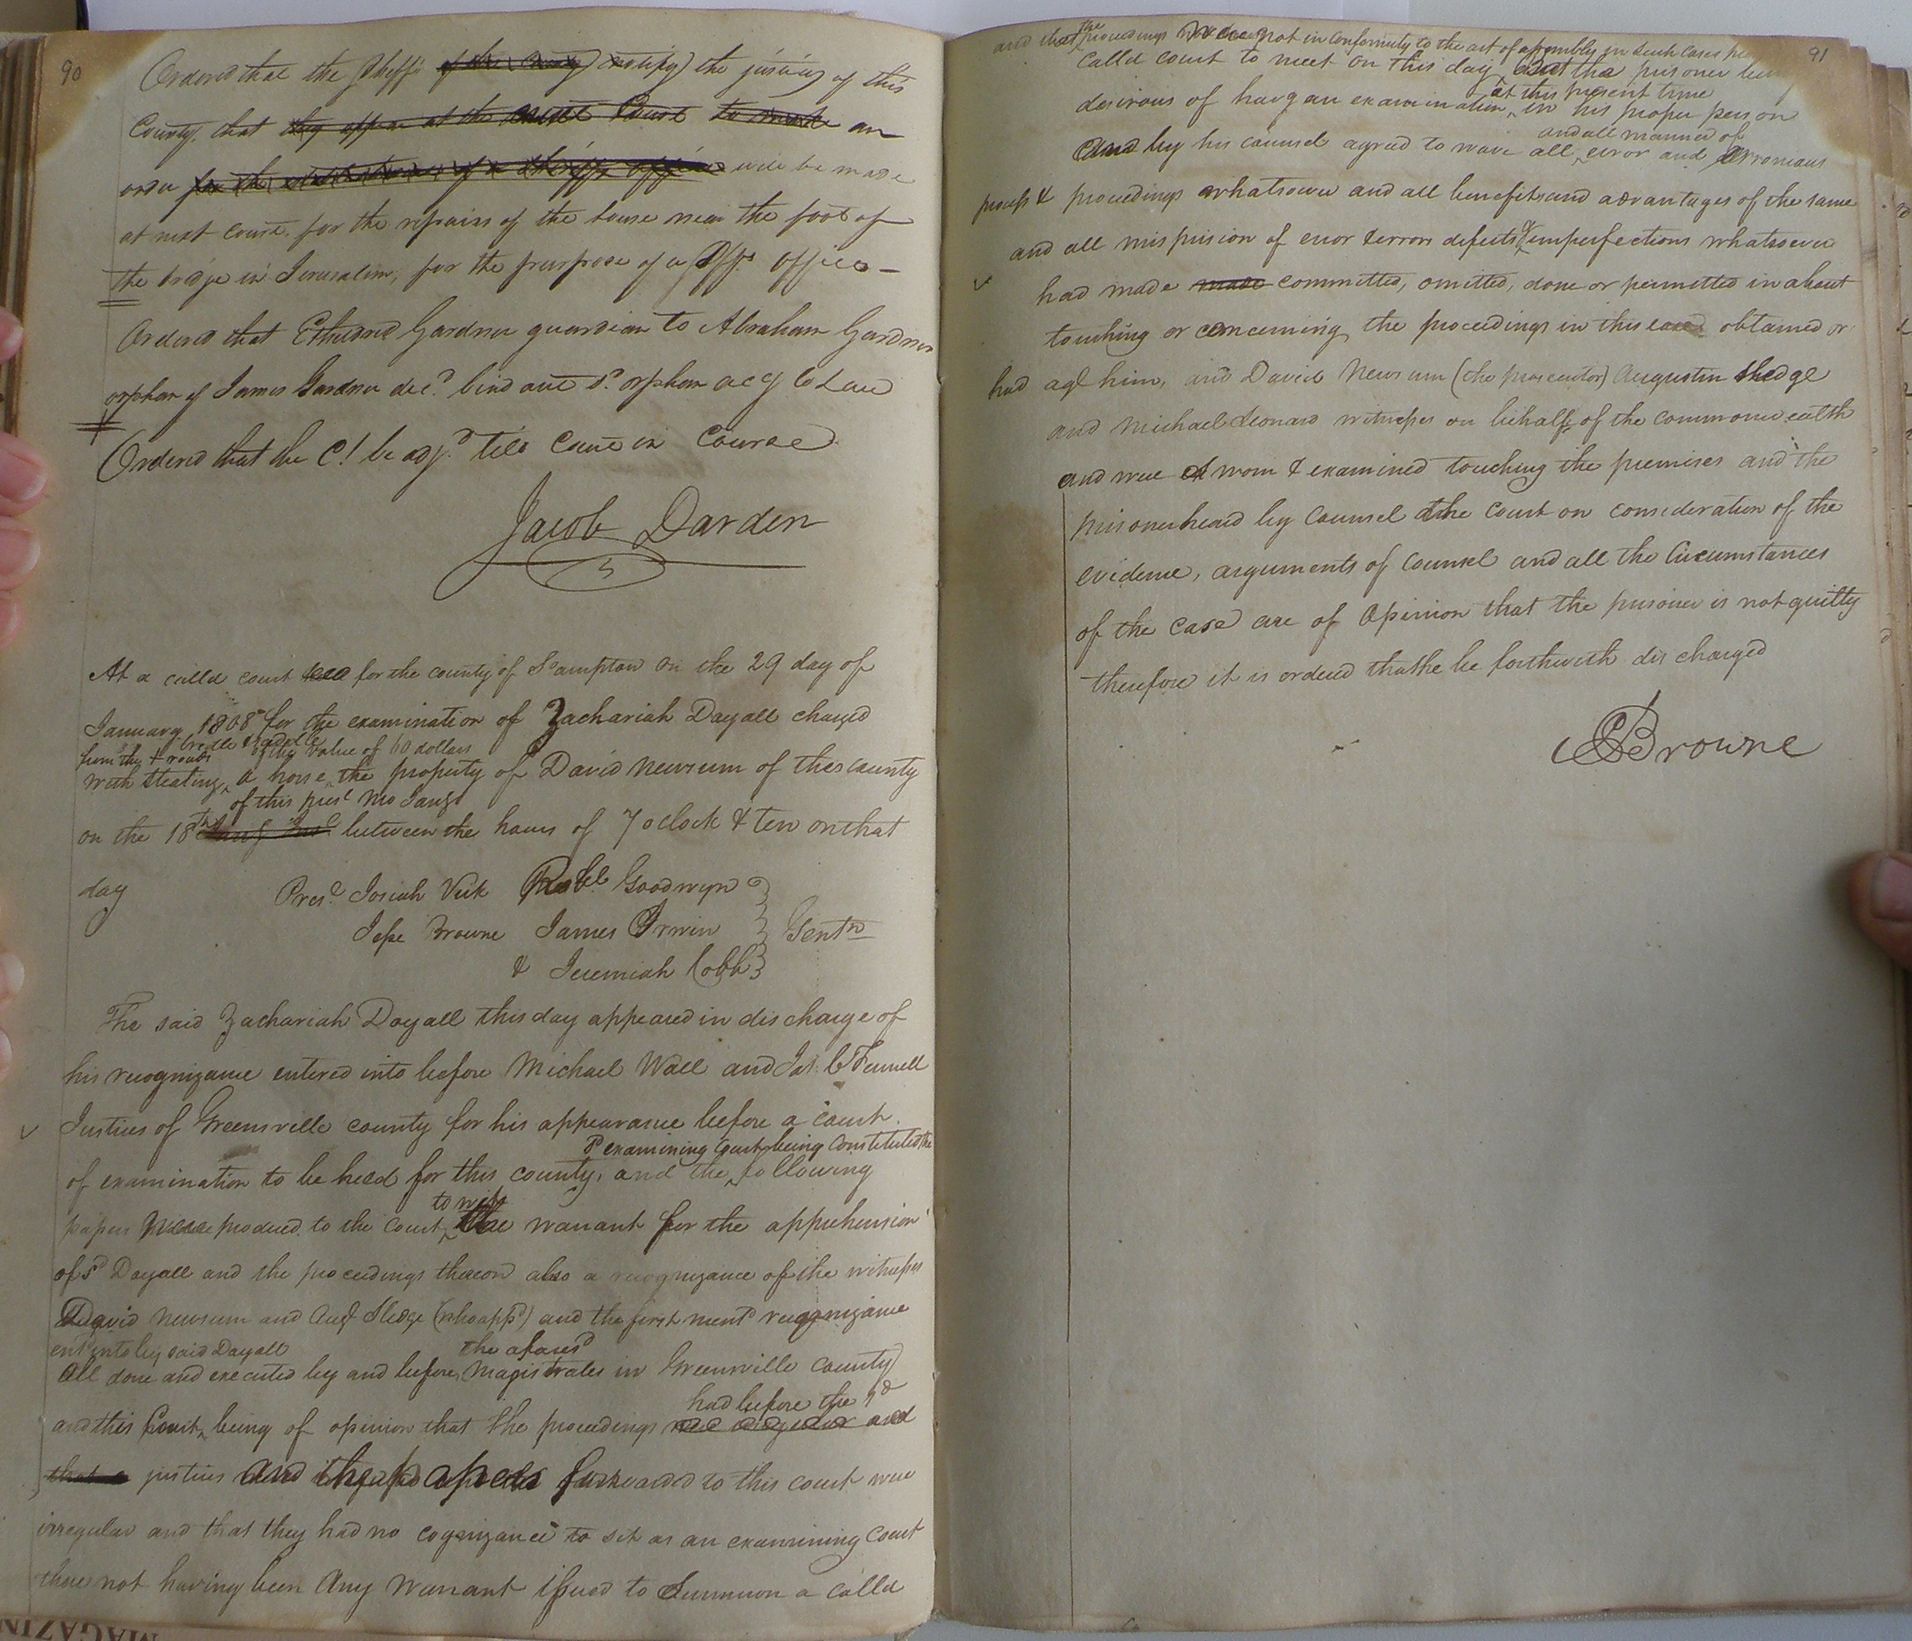 90
Ordered that the Sheff notify the justices of this
County. that they appear at the next Court to make an
order for the of a sheriffs office will be made
at next court. for the repairs of the house near the foot of
the bridge in Jerusalem, for the purpose of a Offi. office —
Ordered that Etheldred Gardner guardian to Abraham Gardner
orphan of James Gardner decd. bind out sd. orphan accg to Law
Ordered that the Ct be adjd. till Court in Course
Jacob Darden
At a calld court held for the county of S'ampton on the 29 day of
January 1808 for the examination of Zachariah Dayall charged
bridle & saddle of the value of 60 dollars
with stealing a horse the property of David Newsum of this county
of this prest mo Jany
on the 18th between the hours of 7 oclock & ten on that
day Prest. Josiah Vick Robt. Goodwyn
Jesse Browne James Irwin Gentn
& Jeremiah Cobb
The said Zachariah Dayall this day appeared in discharge of
his recognizance entered into before Michael Wall and Jas. C Fennell
Justices of Greensville county for his appearance before a court
sd examining Court being Constituted the
of examination to be held for this county, and the following
to wit
papers were produced to the court the warrant for the apprehension
of sd Dayall and the proceedings thereon also a recognizance of the witnesses
David Newsum and Augt Sledge (who appd) and the first mentd recognizance
entd into by said Dayall the aforesd
all done and executed by and before magistrates in Greensville county
had before the sd
and this Court being of opinion that the proceedings are irregular and
that justices and the papers forwarded to this court were
irregular and that they had no cognizance to sit as an examining Court
there not having been any warrant issued to Summon a calld
91
and that the proceedings were not in conformity to the act of assembly in such cases
calld court to meet on this day, but the prisoner being
at this present time
desirous of havg an examination, in his proper person
and all manner of
and by his counsel agreed to wave all error and erronious
process & proceedings whatsoever and all benefits and advantages of the same
and all misprision of error & errors defects & imperfections whatsoever
had made made committed, omitted, done or permitted in about
touching or concerning the proceedings in this case obtained or
had agt him, and David Newsum (the prosecutor) Augustin Sledge
and Michael Leonard witnesses on behalf of the commonwealth
and were sworn & examined touching the premises and the
prisoner heard by Counsel & the court on consideration of the
evidence, arguments of Counsel and all the Circumstances
of the case are of Opinion that the prisoner is not guilty
therefore it is ordered that he be forthwith discharged
Browne
MAGAZIN